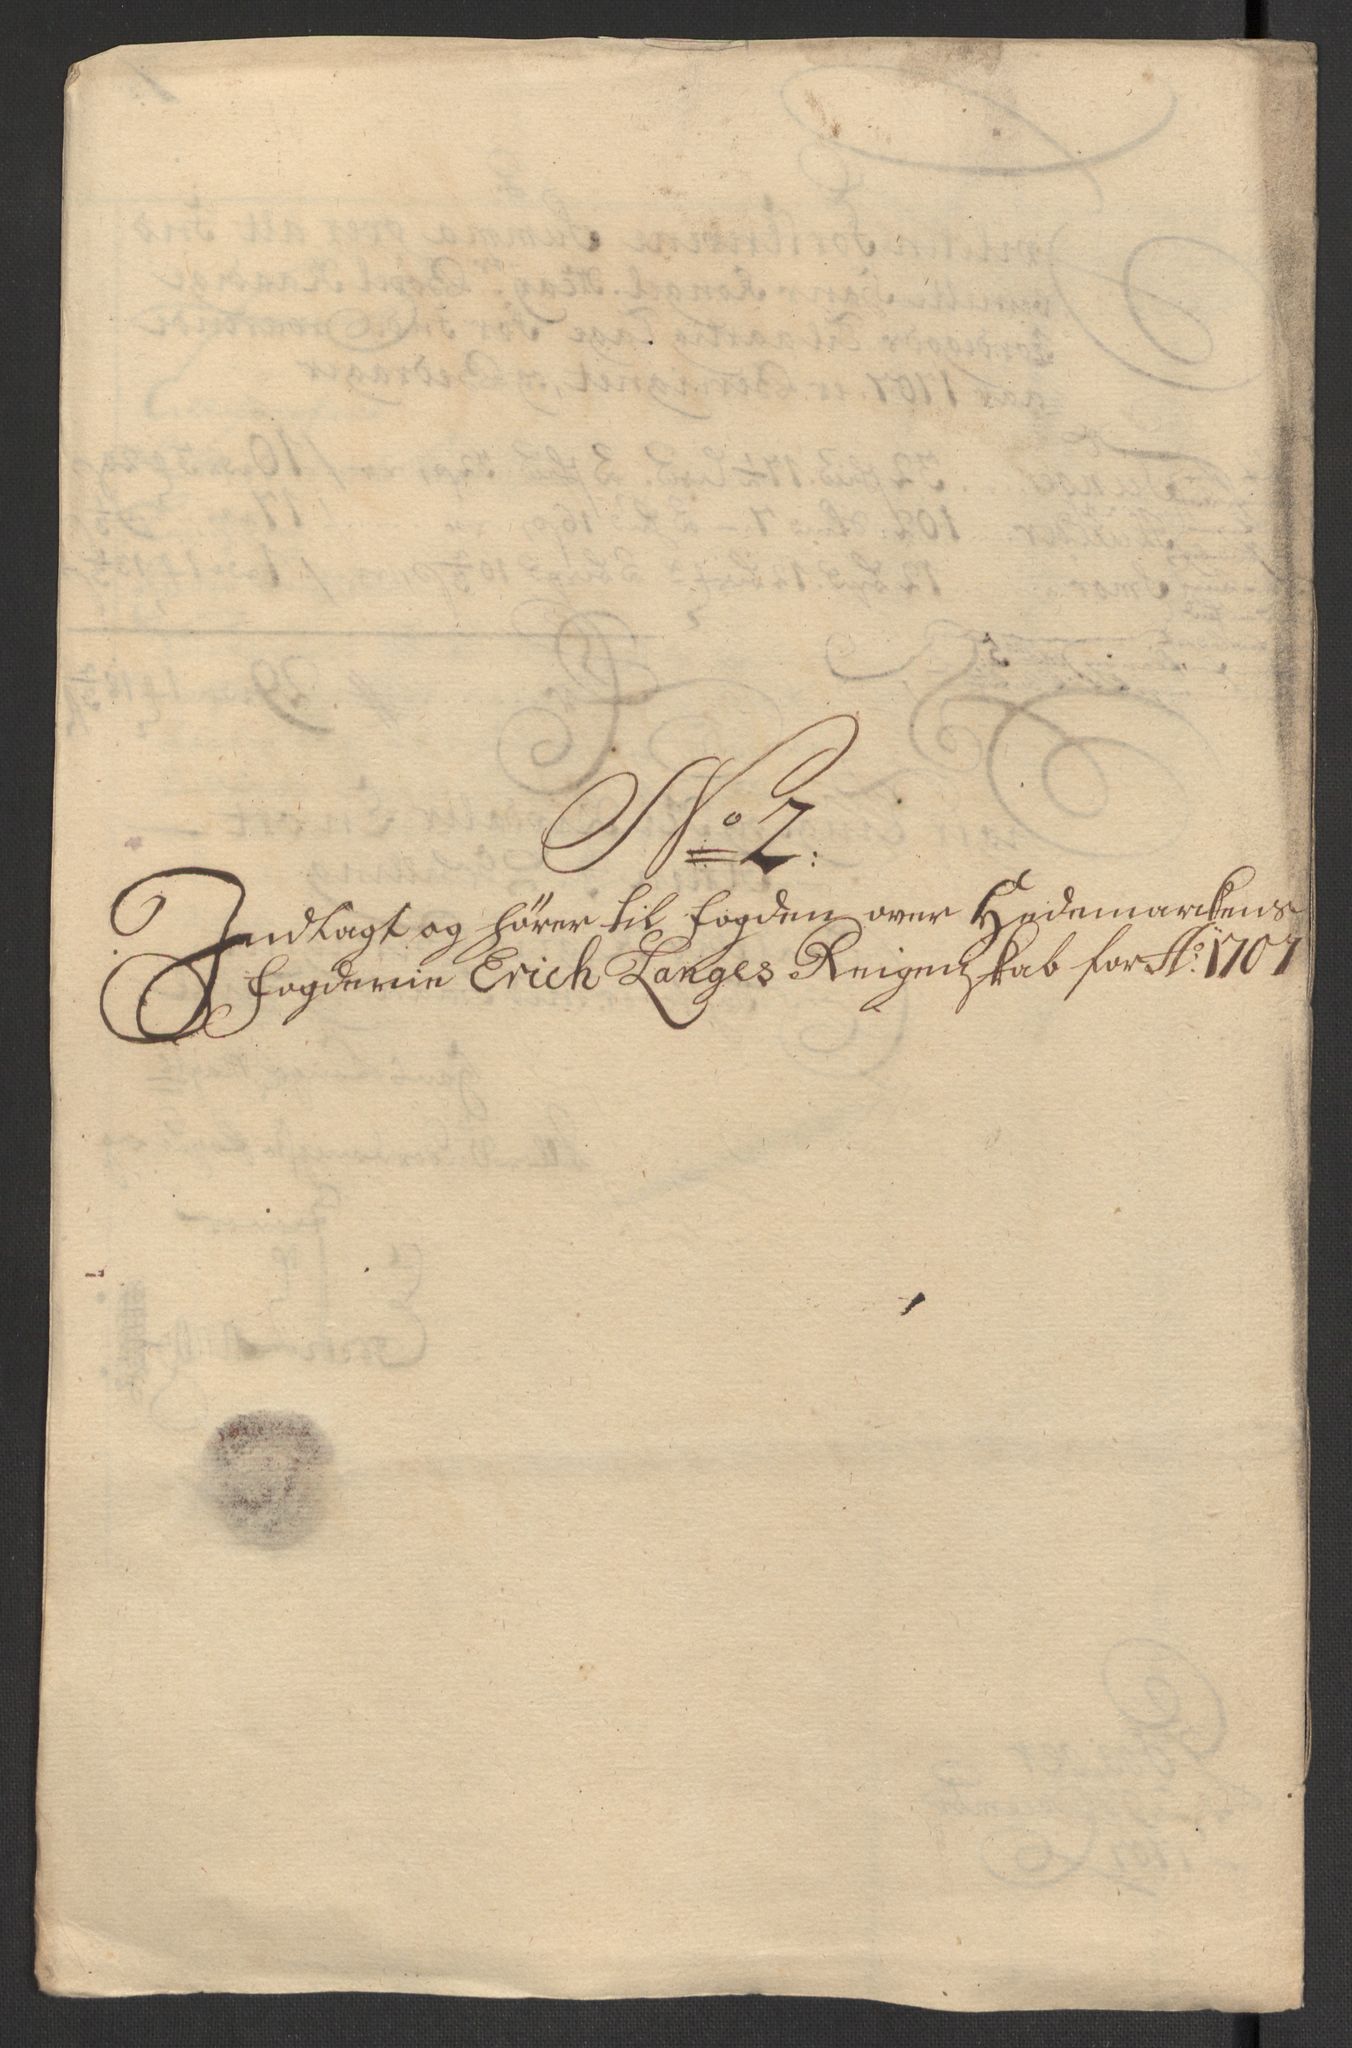 No 2:
Indlagt og hører til fogden over Hedemarkens
fogderie Erich Langes Reigenskab for Ao: 1707